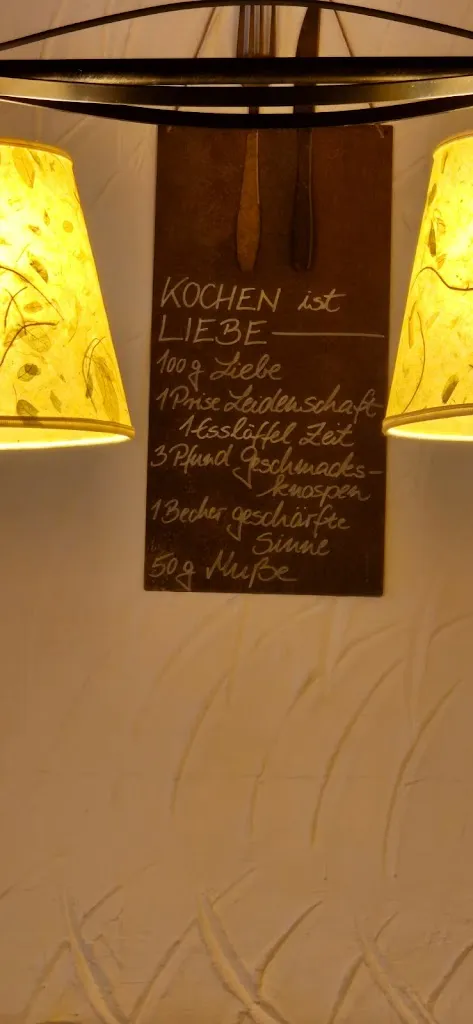 KOCHEN ist
LIEBE
100g Liebe
1 Prise Leidenschaft
1 Esslöffel Zeit
3 Pfund Geschmacks-
knospen
1 Becher geschärfte
Sinne
50g Muße